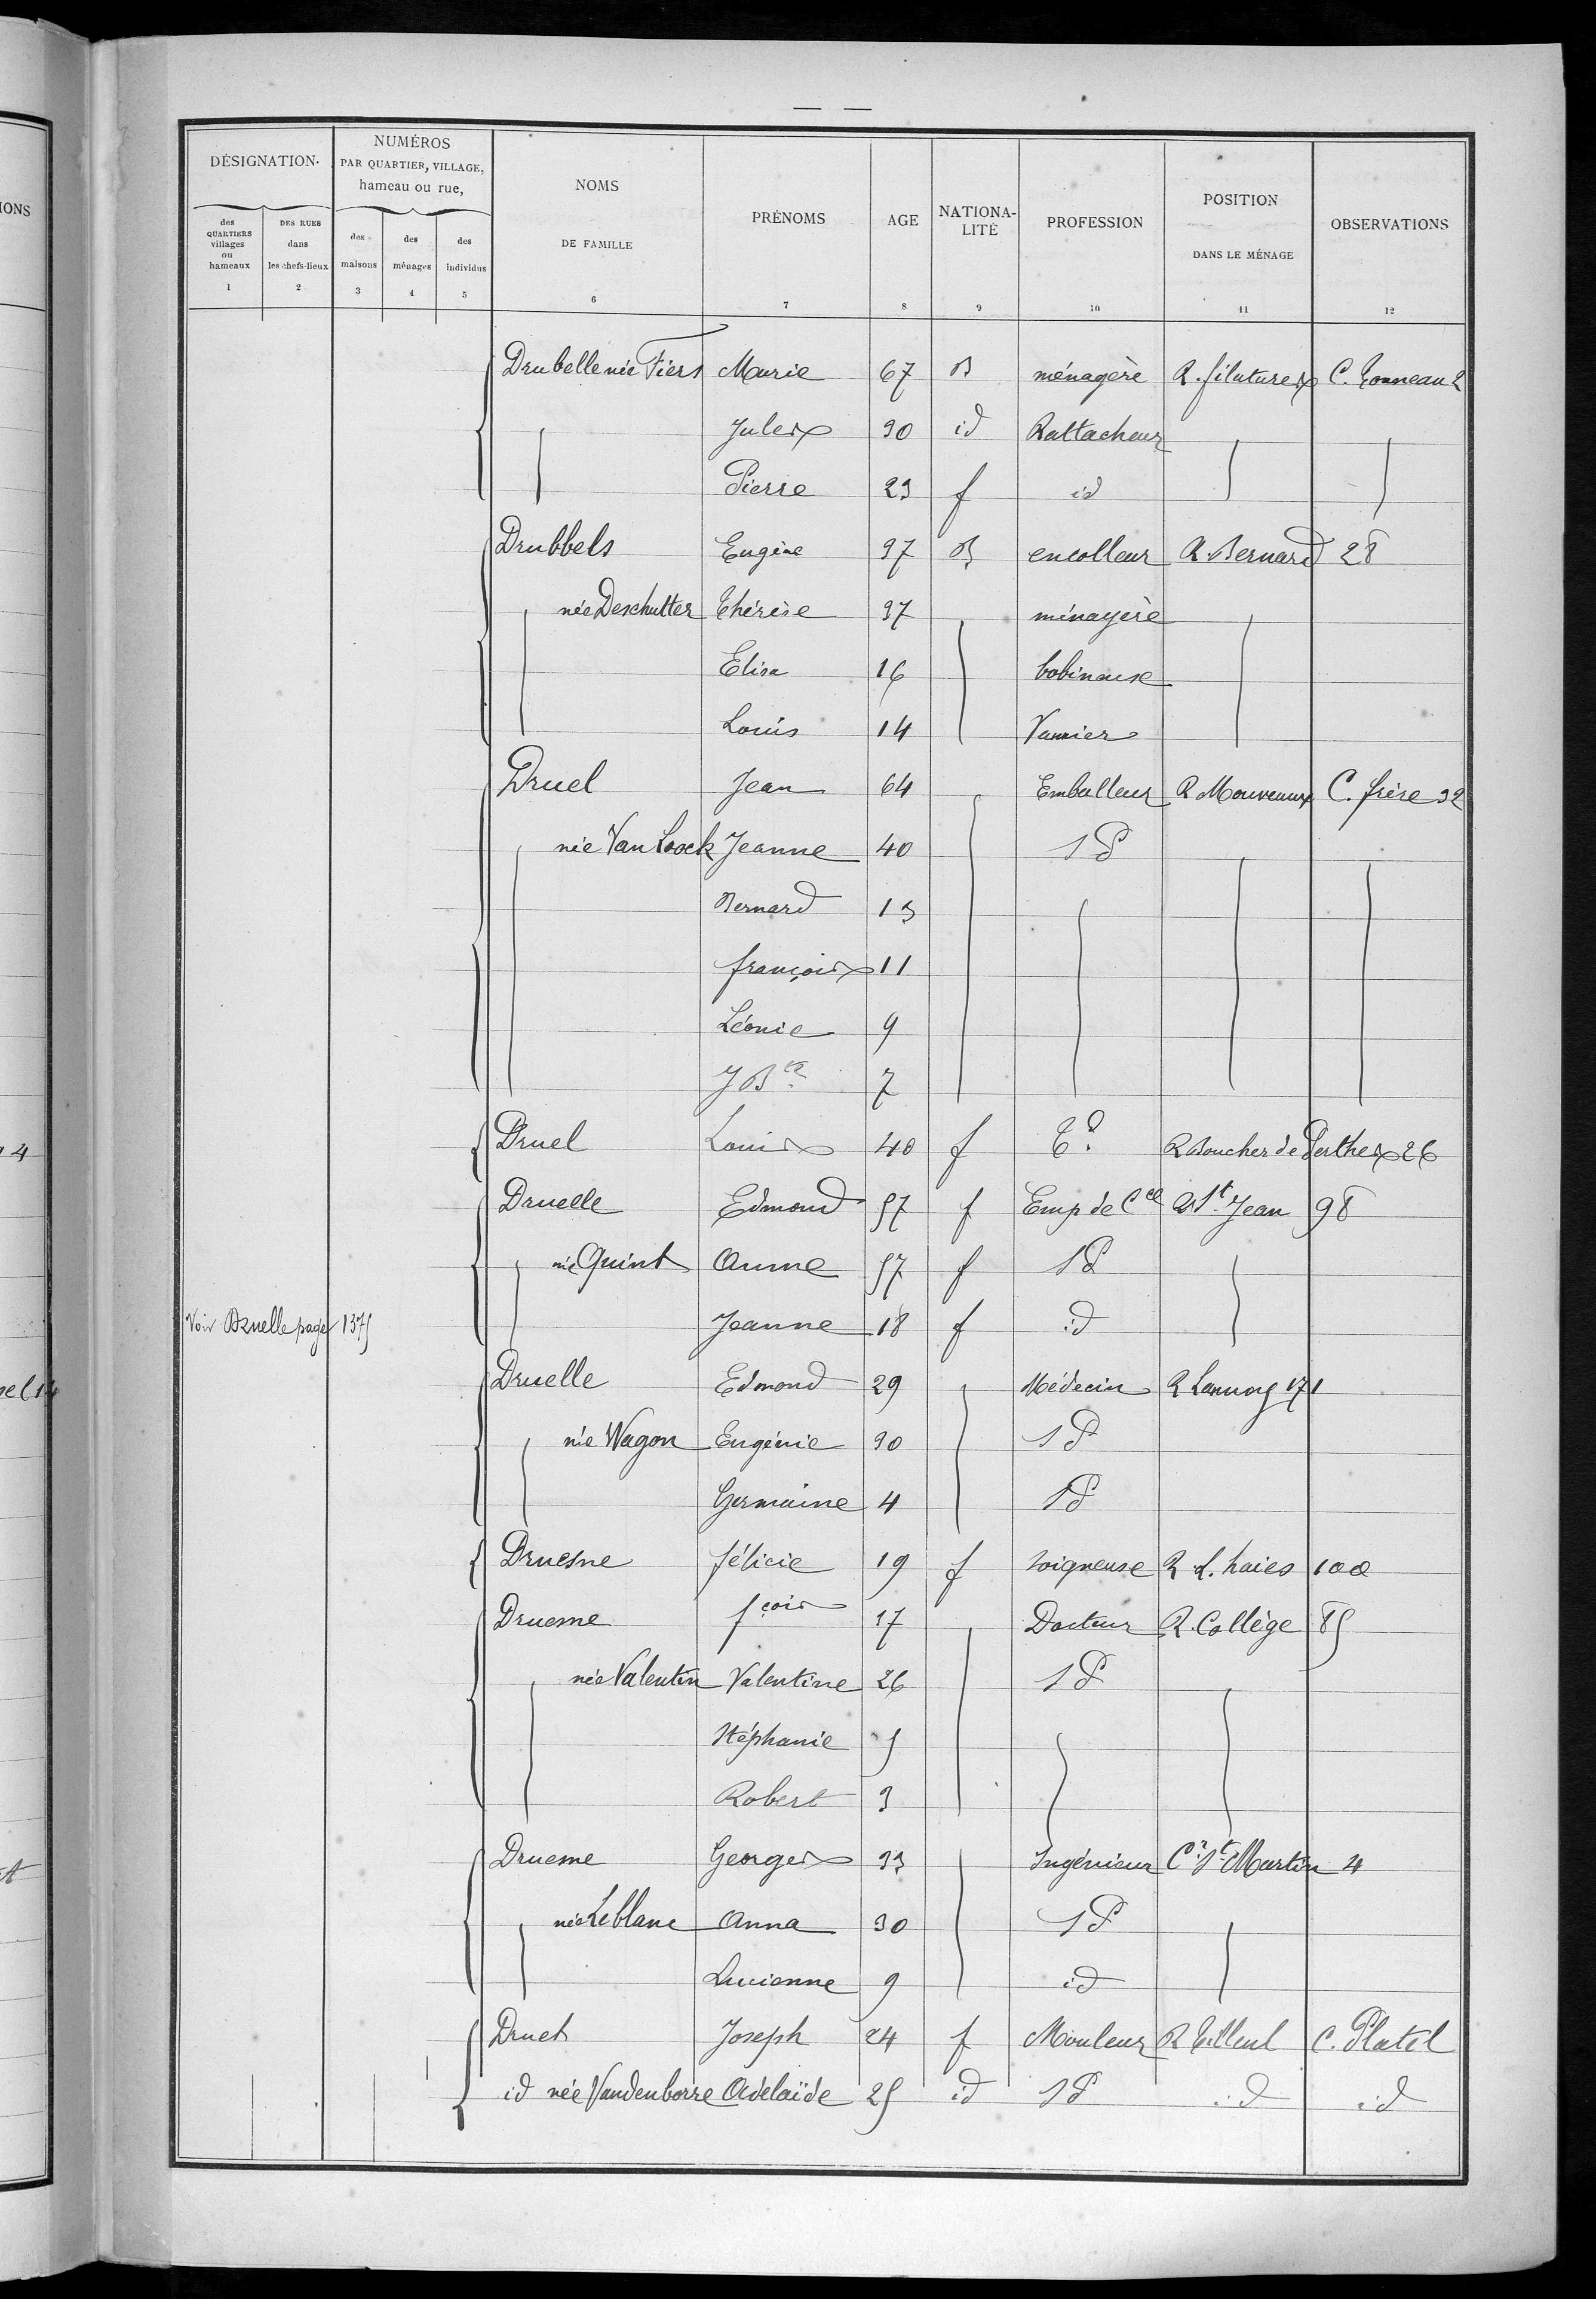 — —
DÉSIGNATION
NUMÉROS
PAR QUARTIER, VILLAGE,
hameau ou rue,
NOMS
DE FAMILLE
PRÉNOMS
AGE
NATIONA-
LITÉ
PROFESSION
POSITION
DANS LE MÉNAGE
OBSERVATIONS
IONS
des QUARTIERS villages ou hameaux
DES RUES dans les chefs-lieux
des maisons
des ménages
des individus
1 2 3 4 5 6 7 8 9 10 11 12
Drubelle née Fiers Marie 67 B ménagère R. filatures C. Tonneau 2
Jules 30 id Rattacheur
Pierre 23 f id
Drubbels Eugène 37 B encolleur R. Bernard 28
née Deschutter Thérèse 37 ménagère
Elisa 16 bobineuse
Louis 14 Vannier
Druel Jean 64 Emballeur R Mouveaux C. frère 32
née Van Loock Jeanne 40 S P
Bernard 13
françois 11
Léonie 9
J Bte 7
Druel Louis 40 f R Boucher de Perthes 26
Druelle Edmond 57 f Emp de Cce R St Jean 98
née Quint Anne 57 f S P
Voir Druelle page 1375 Jeanne 18 f id
Druelle Edmond 29 Médecin R Lannoy 171
née Wagon Eugénie 30 S P
Germaine 4 S P
Druesne félicie 19 f soigneuse R l. haies 100
Druesne fçois 37 Docteur R. Collège 85
née Valentin Valentine 26 S P
Stéphanie 5
Robert 3
Druesne Georges 33 Ingénieur Cr St Martin 4
née Leblanc Anna 30 S P
Lucienne 9 id
Druet Joseph 24 f Mouleur R Tilleul C. Platel
id née Vandenborre Adelaïde 25 id S P id id